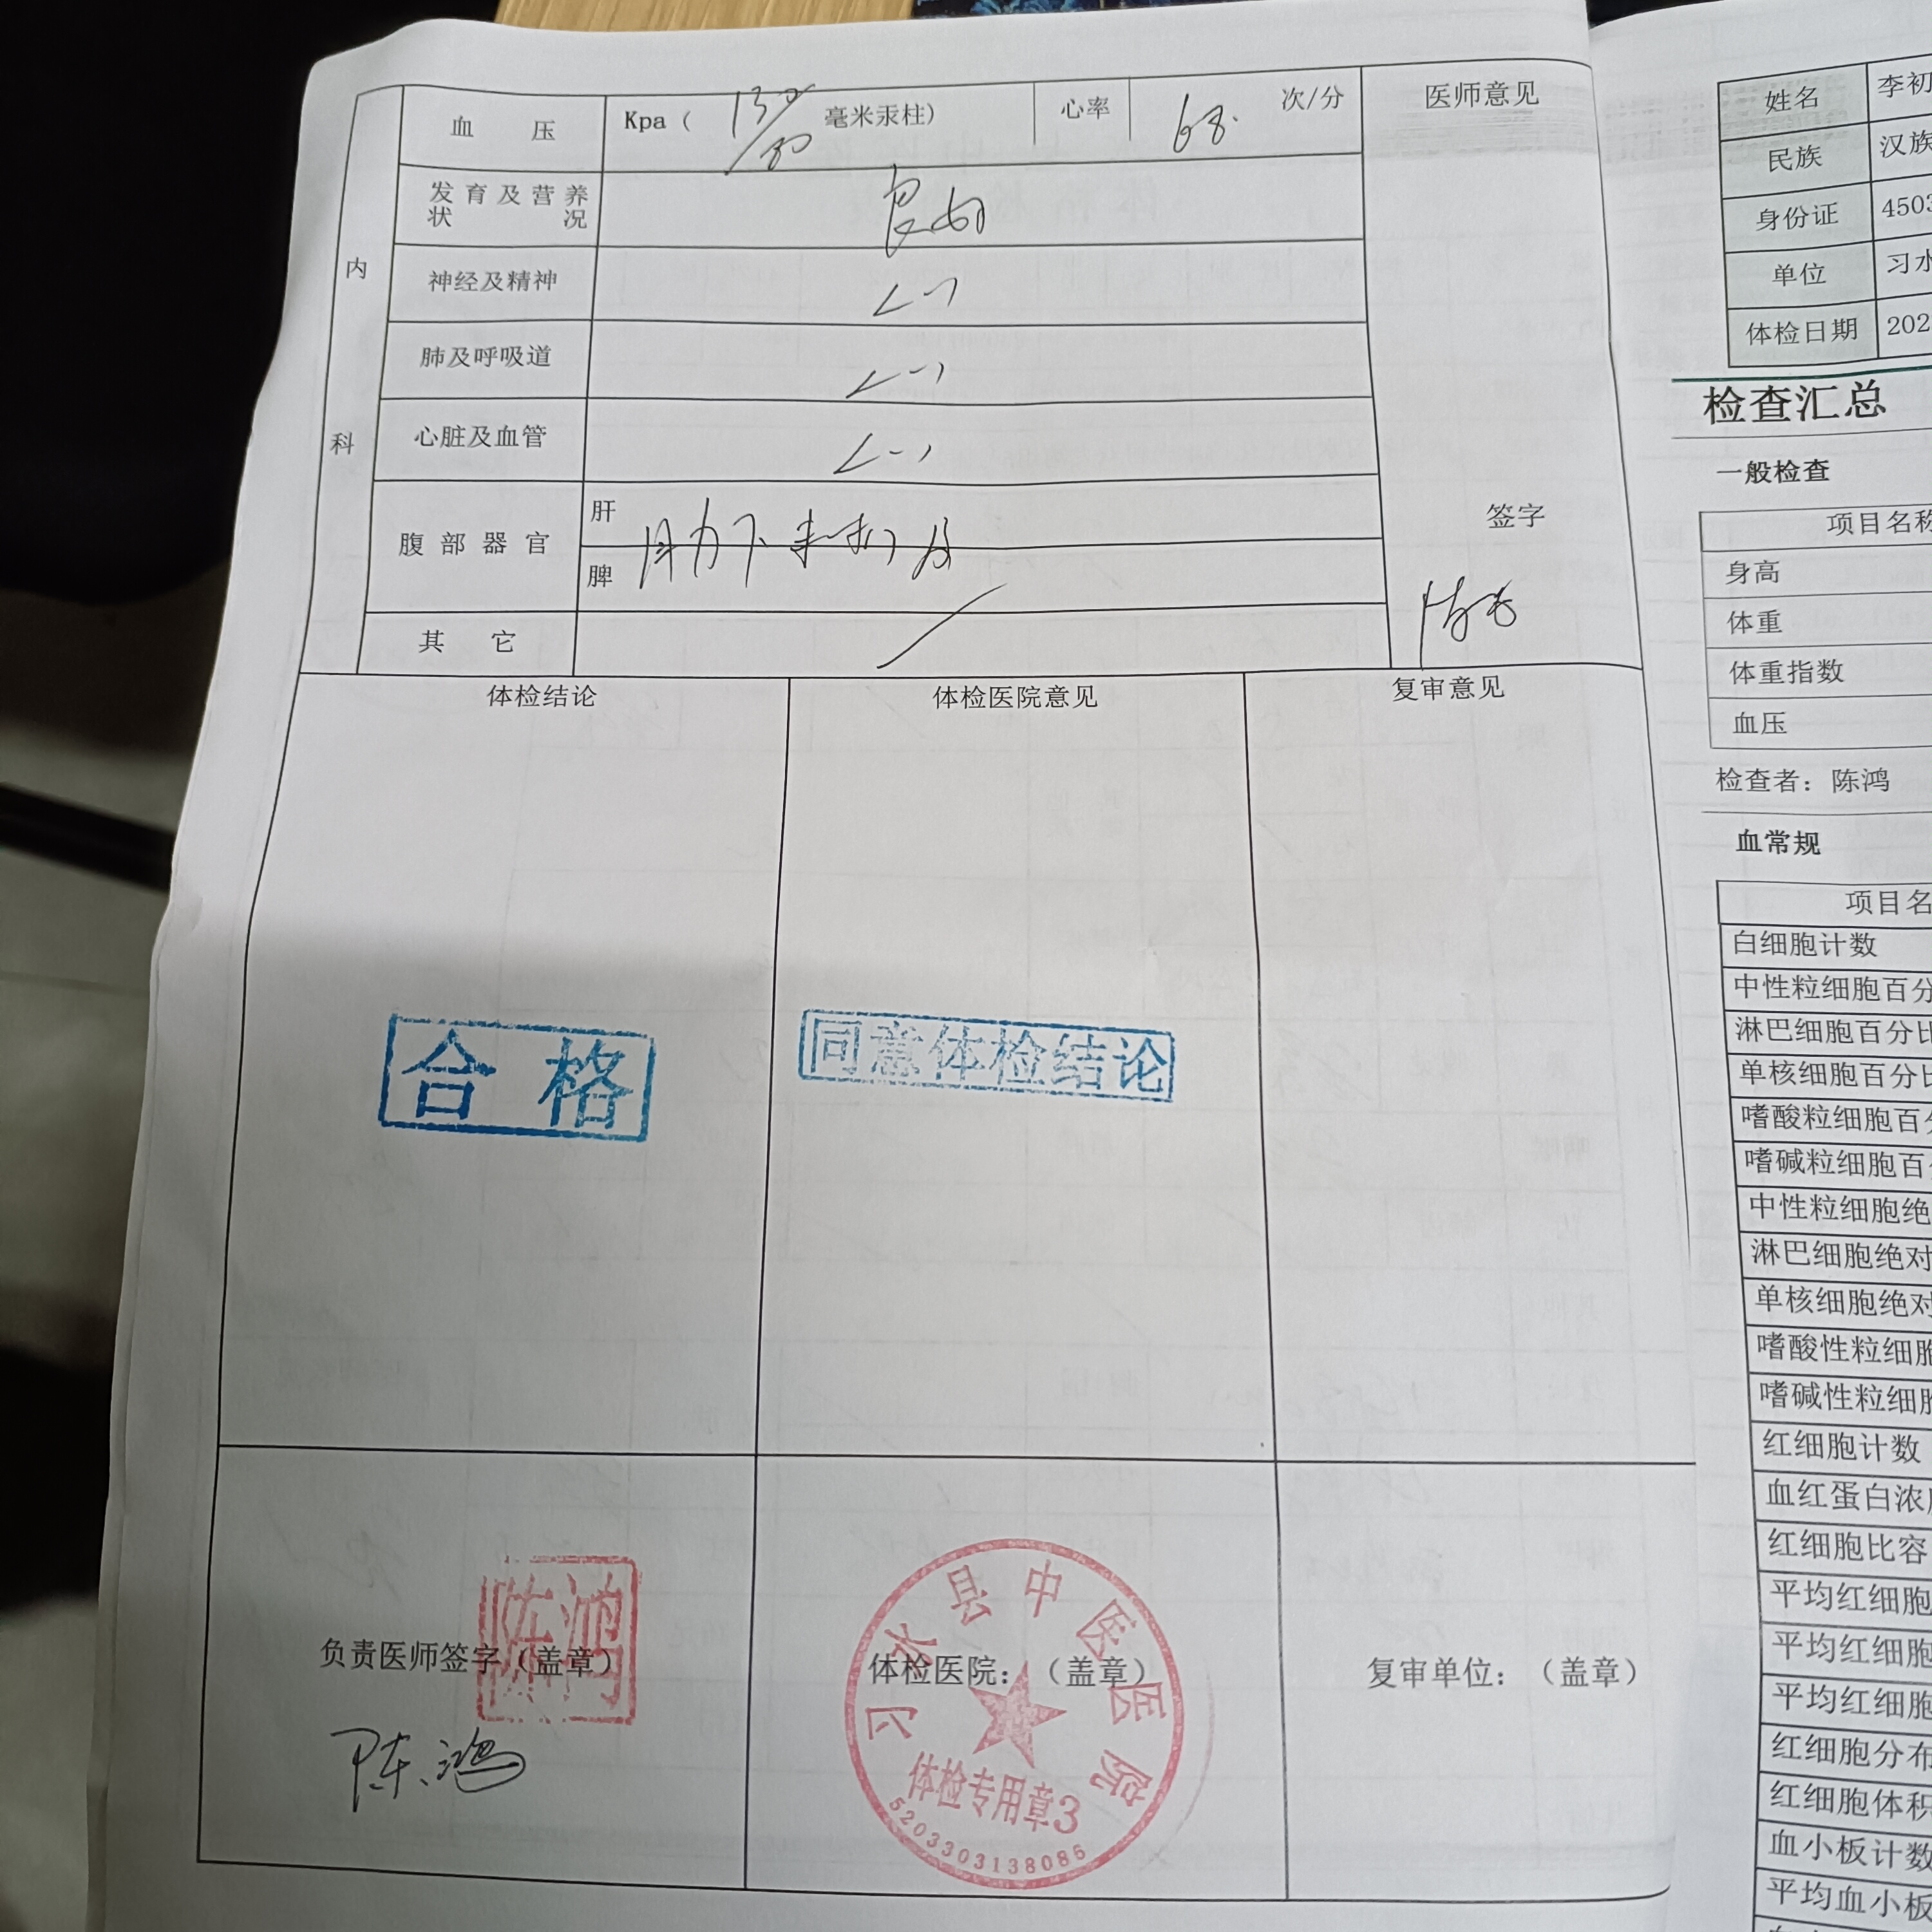 内科
血 压
Kpa ( 130/80 毫米汞柱)
心率
68. 次/分
医师意见
发育及营养状况
良好
神经及精神
(-)
肺及呼吸道
(-)
心脏及血管
(-)
腹部器官
肝
脾
肋下未扪及
其 它
签字
体检结论
体检医院意见
复审意见
合格
同意体检结论
负责医师签字（盖章）
陈鸿
陈鸿
体检医院：（盖章）
习水县中医医院
体检专用章3
5203303138086
复审单位：（盖章）
姓名 李初
民族 汉族
身份证 4503
单位 习水
体检日期 202
检查汇总
一般检查
项目名称
身高
体重
体重指数
血压
检查者：陈鸿
血常规
项目名
白细胞计数
中性粒细胞百分
淋巴细胞百分比
单核细胞百分比
嗜酸粒细胞百分
嗜碱粒细胞百
中性粒细胞绝
淋巴细胞绝对
单核细胞绝对
嗜酸性粒细胞
嗜碱性粒细胞
红细胞计数
血红蛋白浓度
红细胞比容
平均红细胞
平均红细胞
平均红细胞
红细胞分布
红细胞体积
血小板计数
平均血小板